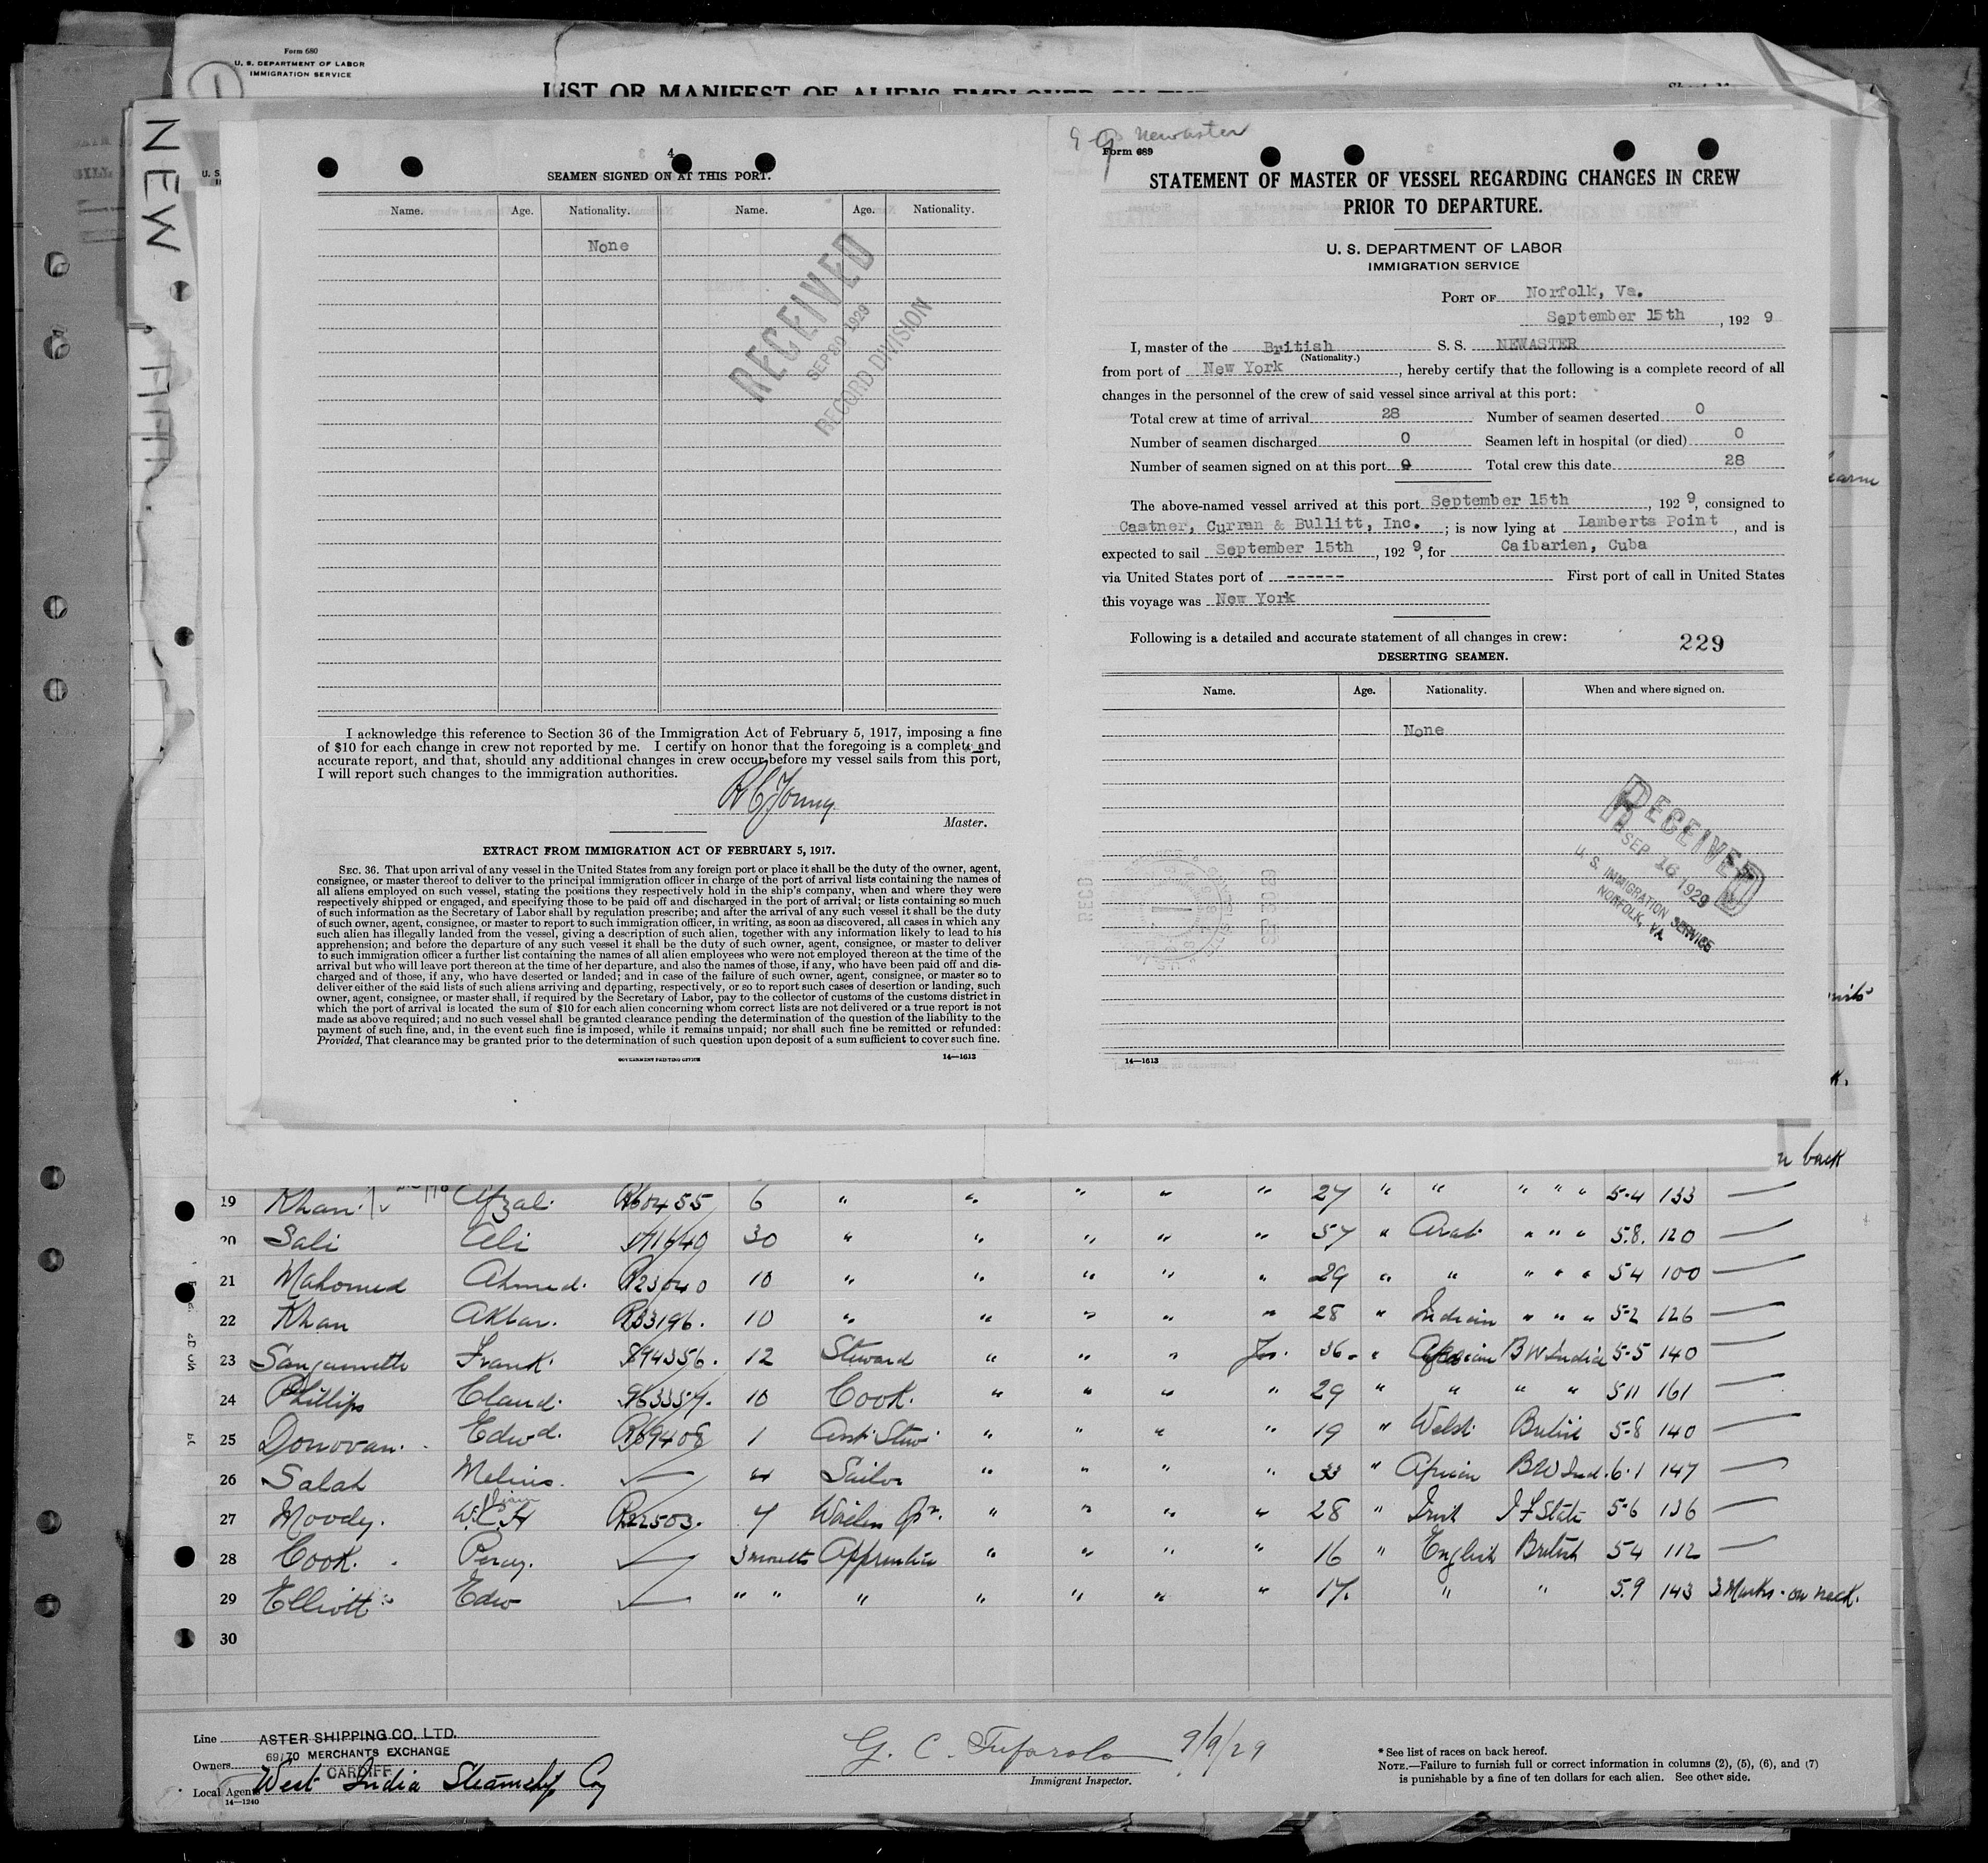 Form 680
U. S. DEPARTMENT OF LABOR
IMMIGRATION SERVICE
LIST OR MANIFEST OF ALIENS EMPLOYED ON THE
NEW
4
SEAMEN SIGNED ON AT THIS PORT.
Name. Age. Nationality. Name. Age. Nationality.
None
RECEIVED
SEP 30 1929
RECORD DIVISION
I acknowledge this reference to Section 36 of the Immigration Act of February 5, 1917, imposing a fine
of $10 for each change in crew not reported by me. I certify on honor that the foregoing is a complete and
accurate report, and that, should any additional changes in crew occur before my vessel sails from this port,
I will report such changes to the immigration authorities.
R C Young
Master.
EXTRACT FROM IMMIGRATION ACT OF FEBRUARY 5, 1917.
SEC. 36. That upon arrival of any vessel in the United States from any foreign port or place it shall be the duty of the owner, agent,
consignee, or master thereof to deliver to the principal immigration officer in charge of the port of arrival lists containing the names of
all aliens employed on such vessel, stating the positions they respectively hold in the ship's company, when and where they were
respectively shipped or engaged, and specifying those to be paid off and discharged in the port of arrival; or lists containing so much
of such information as the Secretary of Labor shall by regulation prescribe; and after the arrival of any such vessel it shall be the duty
of such owner, agent, consignee, or master to report to such immigration officer, in writing, as soon as discovered, all cases in which any
such alien has illegally landed from the vessel, giving a description of such alien, together with any information likely to lead to his
apprehension; and before the departure of any such vessel it shall be the duty of such owner, agent, consignee, or master to deliver
to such immigration officer a further list containing the names of all alien employees who were not employed thereon at the time of the
arrival but who will leave port thereon at the time of her departure, and also the names of those, if any, who have been paid off and dis-
charged and of those, if any, who have deserted or landed; and in case of the failure of such owner, agent, consignee, or master so to
deliver either of the said lists of such aliens arriving and departing, respectively, or so to report such cases of desertion or landing, such
owner, agent, consignee, or master shall, if required by the Secretary of Labor, pay to the collector of customs of the customs district in
which the port of arrival is located the sum of $10 for each alien concerning whom correct lists are not delivered or a true report is not
made as above required; and no such vessel shall be granted clearance pending the determination of the question of the liability to the
payment of such fine, and, in the event such fine is imposed, while it remains unpaid; nor shall such fine be remitted or refunded:
Provided, That clearance may be granted prior to the determination of such question upon deposit of a sum sufficient to cover such fine.
GOVERNMENT PRINTING OFFICE 14—1613
Newaster
Form 689
STATEMENT OF MASTER OF VESSEL REGARDING CHANGES IN CREW
PRIOR TO DEPARTURE.
U. S. DEPARTMENT OF LABOR
IMMIGRATION SERVICE
PORT OF Norfolk, Va.
September 15th, 1929
I, master of the British S. S. NEWASTER
(Nationality.)
from port of New York, hereby certify that the following is a complete record of all
changes in the personnel of the crew of said vessel since arrival at this port:
Total crew at time of arrival 28 Number of seamen deserted 0
Number of seamen discharged 0 Seamen left in hospital (or died) 0
Number of seamen signed on at this port 0 Total crew this date 28
The above-named vessel arrived at this port September 15th, 1929, consigned to
Castner, Curran & Bullitt, Inc.; is now lying at Lamberts Point, and is
expected to sail September 15th, 1929, for Caibarien, Cuba
via United States port of ------ First port of call in United States
this voyage was New York
Following is a detailed and accurate statement of all changes in crew: 229
DESERTING SEAMEN.
Name. Age. Nationality. When and where signed on.
None
RECEIVED
SEP 16 1929
U. S. IMMIGRATION SERVICE
NORFOLK, VA.
REC'D SEP 30 29
14—1613
back
19 Khan Afzal. R60455 6 " " " " " 27 " " " " " 5-4 133 —
20 Sali Ali 30 " " " " " 57 " Arab " " " 5.8. 120 —
21 Mahomed Ahmed. R23040 10 " " " " " 29 " " " " " 54 100 —
22 Khan Akbar. R33196. 10 " " " " " 28 " Indian " " " 5-2 126 —
23 Frank. 894356. 12 Steward " " " 36 " African B W India 5-5 140 —
24 Phillips Claud. 10 Cook. " " " " 29 " " " " 5 11 161 —
25 Donovan. Edwd. R69408 1 Asst Stew " " " " 19 " Welsh British 5-8 140 —
26 Salah 4 Sailor " " " " 33 " African B W Ind. 6.1 147 —
27 Moody. W.C.H R22503. 4 " " " " 28 " Irish I F State 5-6 136 —
28 Cook. Percy. 3 months Apprentice " " " " 16 " English British 54 112 —
29 Elliott Edw " " " " " " " 17. " " 5.9 143 3 Marks on neck.
30
Line ASTER SHIPPING CO. LTD.
69/70 MERCHANTS EXCHANGE
Owners CARDIFF
Local Agents West India Steamship Co
14—1240
G. C. Tufarolo 9/9/29
Immigrant Inspector.
* See list of races on back hereof.
NOTE.—Failure to furnish full or correct information in columns (2), (5), (6), and (7)
is punishable by a fine of ten dollars for each alien. See other side.